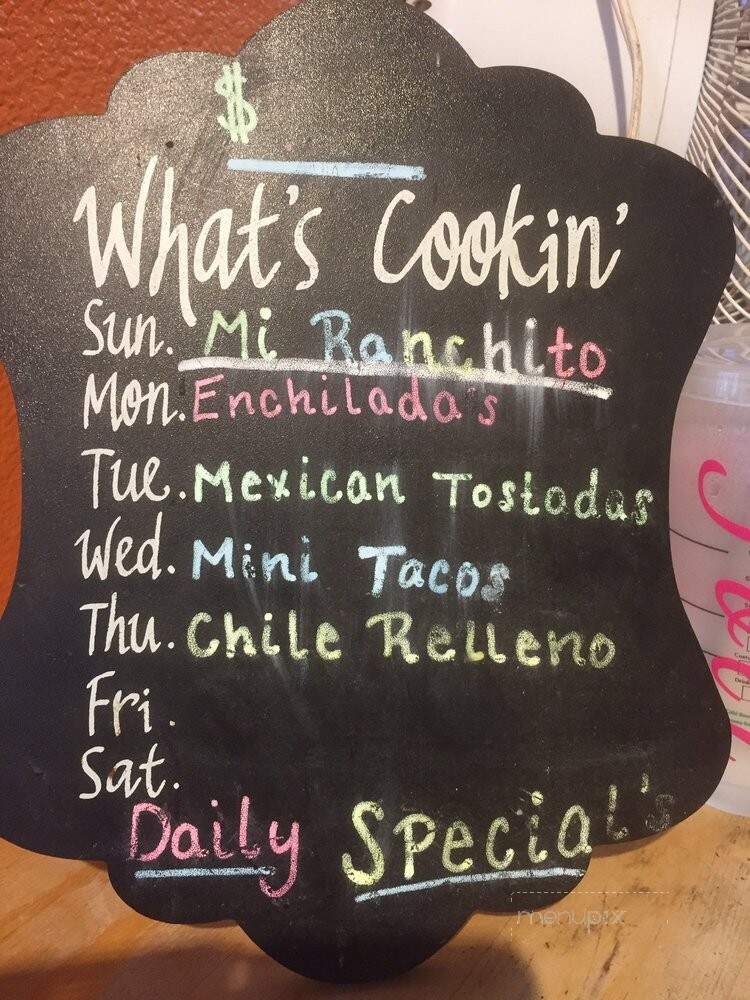 $
What's Cookin'
Sun. Mi Ranchito
Mon. Enchilada's
Tue. Mexican Tostadas
Wed. Mini Tacos
Thu. Chile Relleno
Fri.
Sat.
Daily Special's
menupix